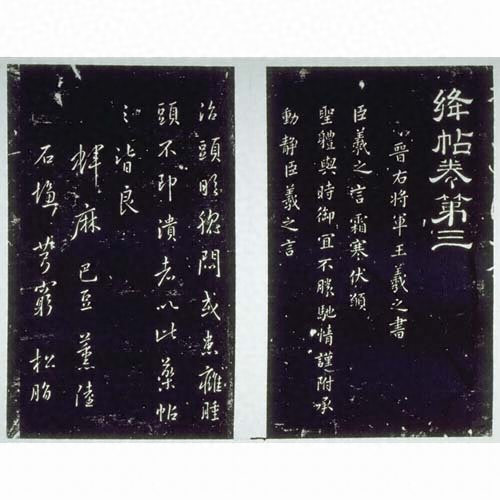 絳帖卷第三
晉右將軍王羲之書
臣羲之言霜寒伏願
聖體與時御宜不勝馳情謹附承
動靜臣羲之言
治頭眩悶或患癰腫
頭不即潰者以此藥帖
之皆良
蜱麻 巴豆 薰陸
石塩 芎窮 松脂